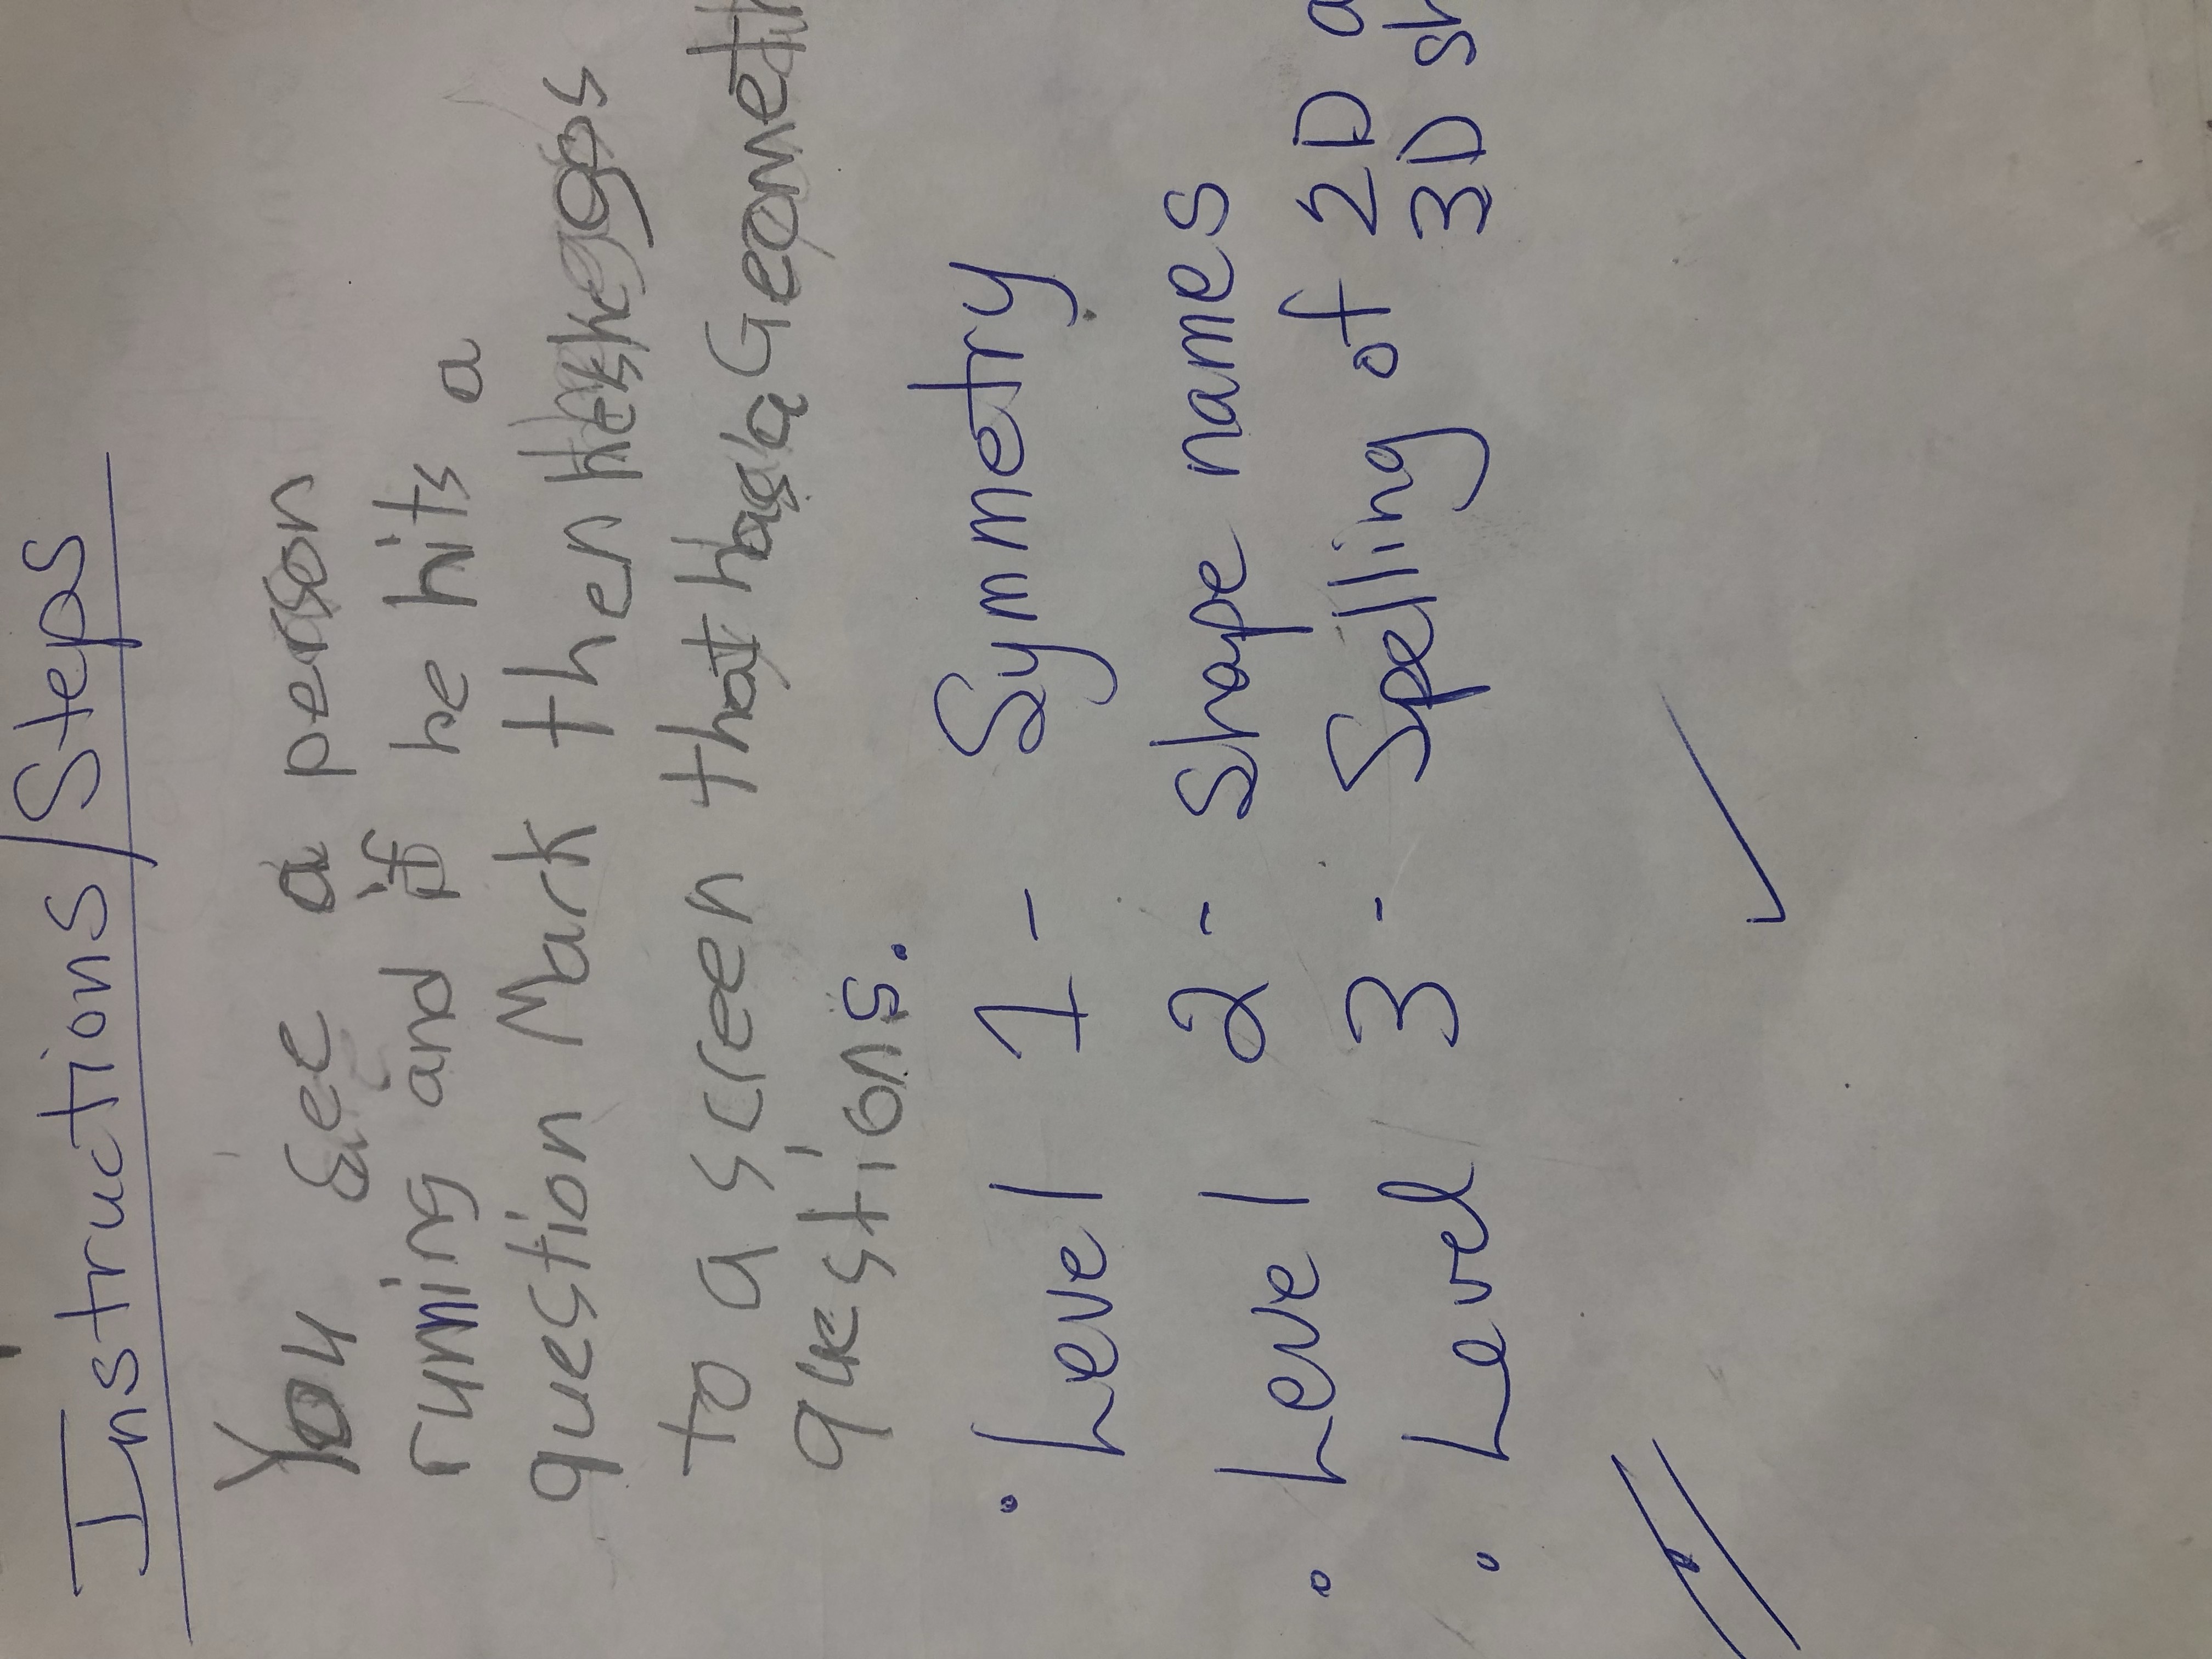 Instructions/Steps
You see a person
running and if he hits a
question Mark then he/she gos
to a screen that has a Geomet
questions.
• Level 1 - Symmetry
• Level 2 - shape names
• Level 3 - Spelling of 2D a
3D sh